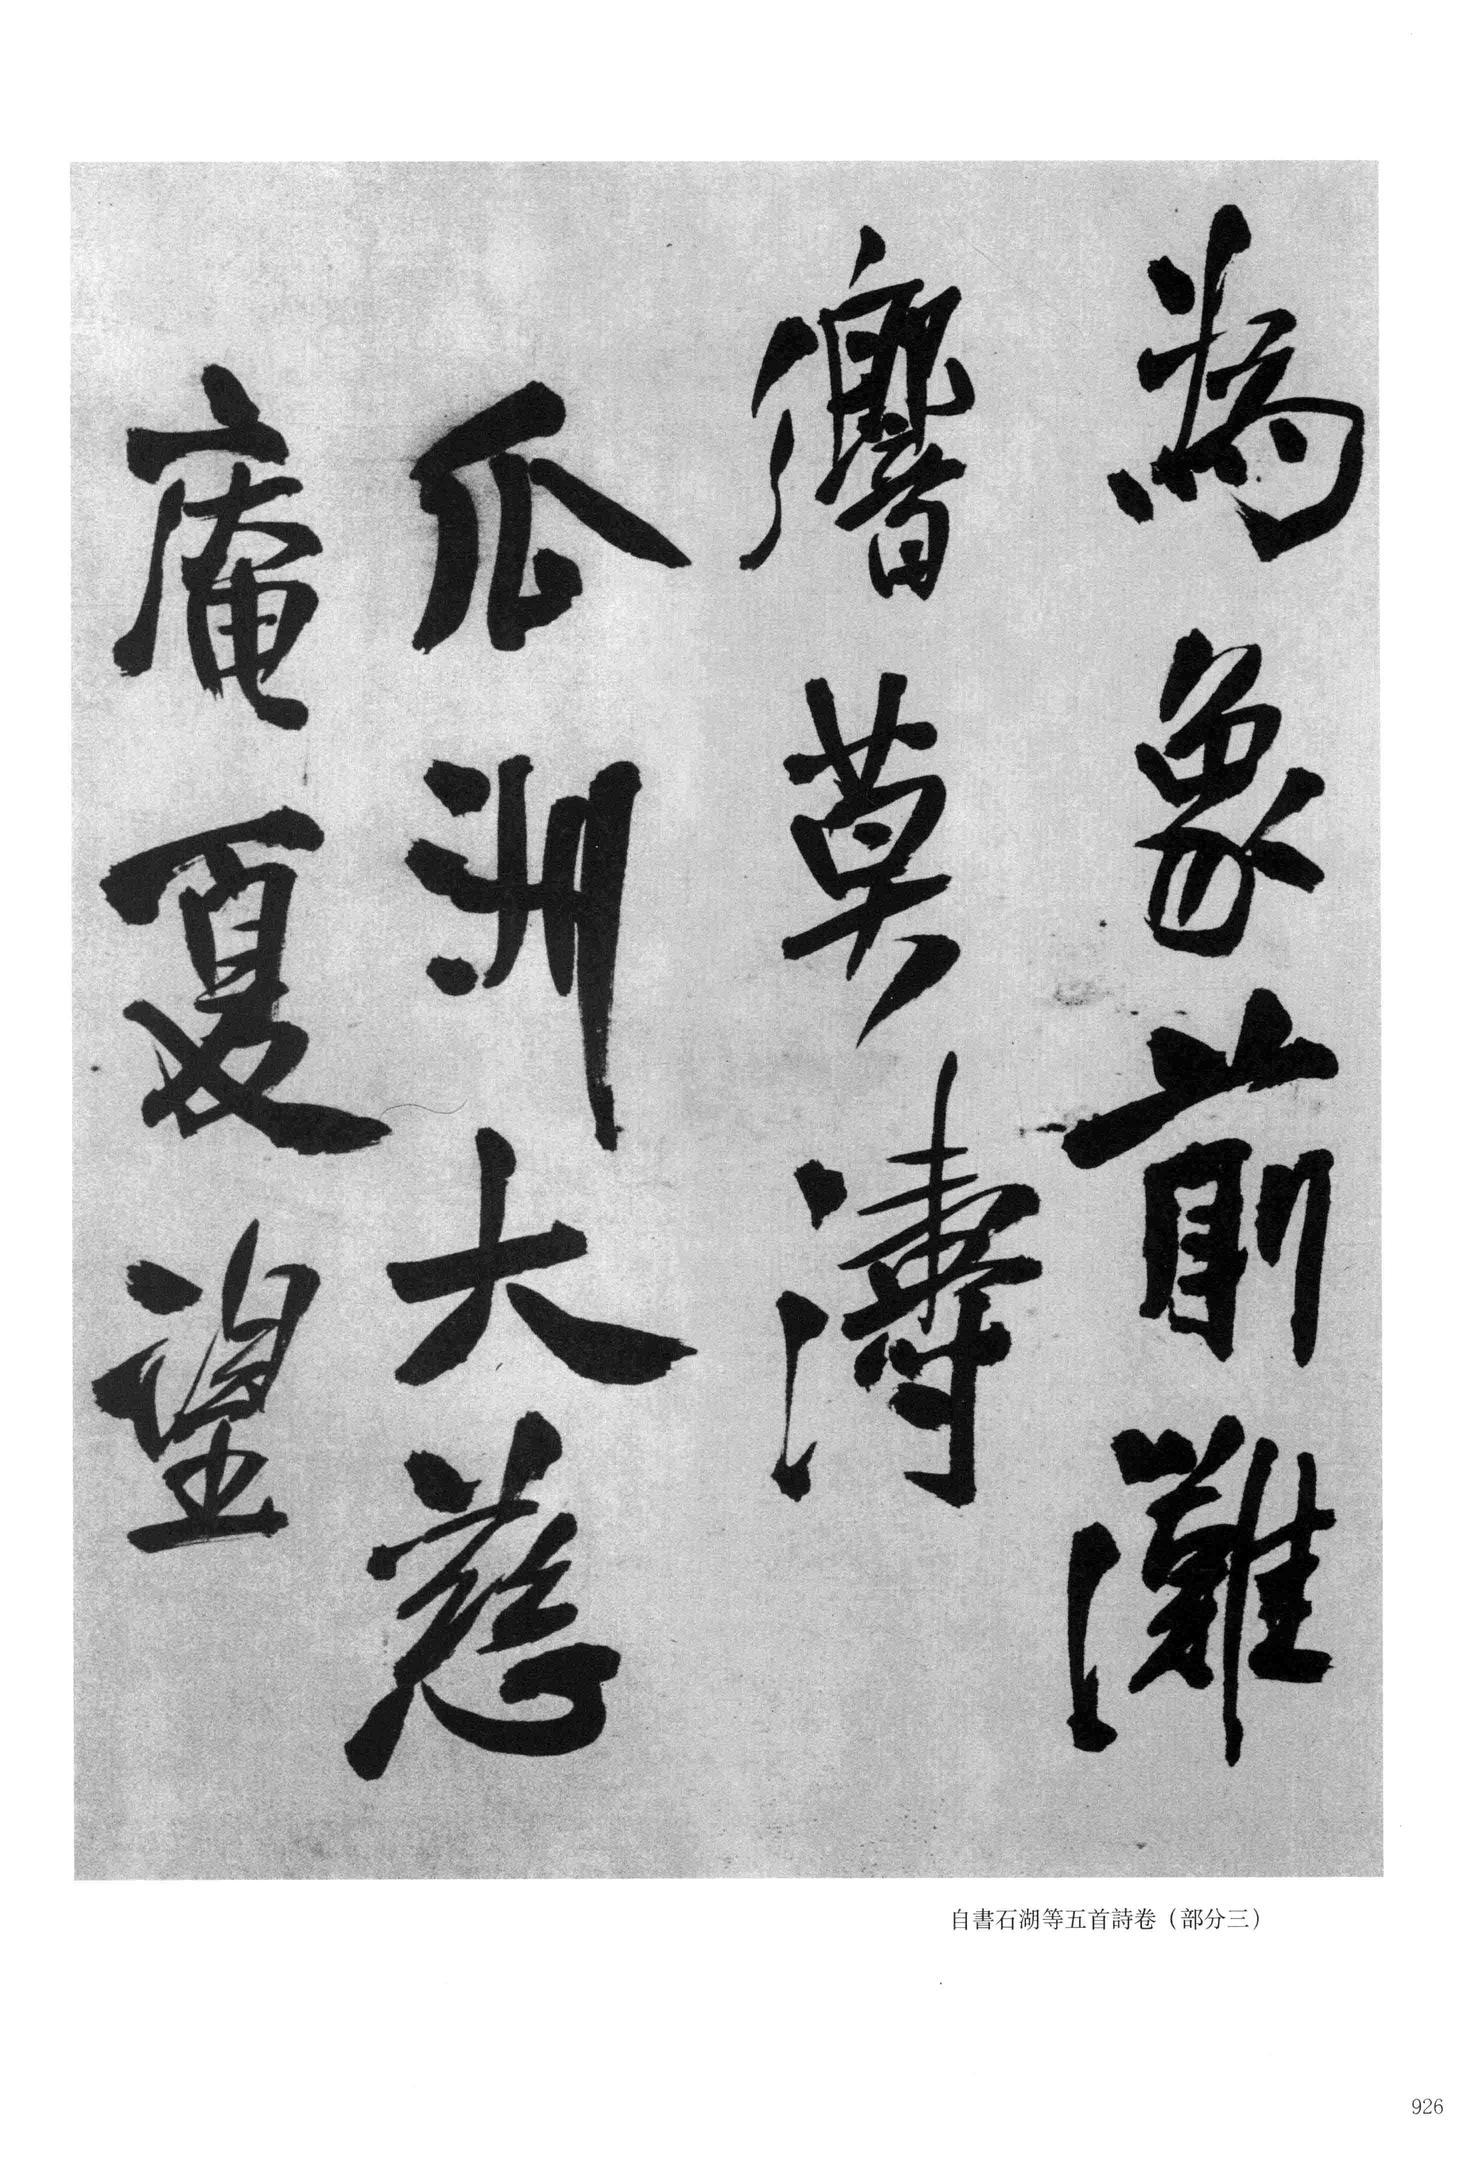 為象前灘
響莫濤
瓜洲大慈
庵夏望
自書石湖等五首詩卷（部分三）
926